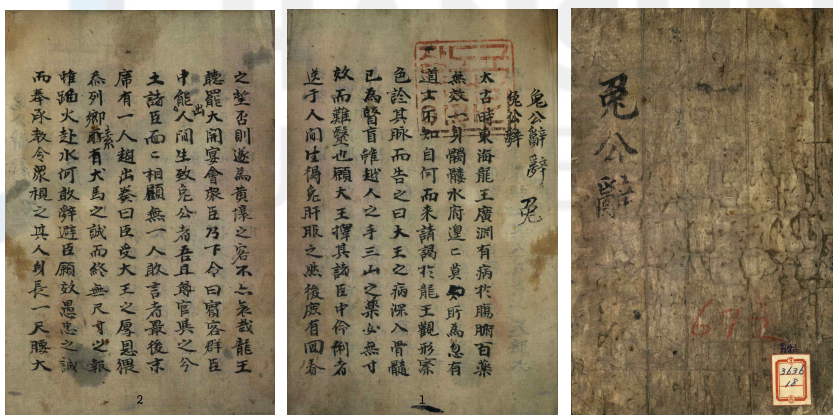 兔公辭
3636
18
兔公辭 辭 兔
兔公辭
太古時東海龍王廣淵有病於膓腑百藥
無效一身髑髏水府遑〻莫知所為忽有
道士不知自何而来請謁於龍王觀形察
色診其脉而告之曰大王之病深入骨髓
已為瞖盲雖越人之手三山之藥必無寸
效而難毉也願大王擇其諸臣中伶俐者
送于人間生得兔肝服之然後庶有回春
1
之望否則遂為黄壤之客不亦哀哉龍王
聽罷大開宴會衆臣乃下令曰賓客群臣
中能出人間生致兔公者吾且尊官與之今
土諸臣面〻相顧無一人敢言者最後末
席有一人趨出奏曰臣受大王之厚恩猥
忝列卿所素有犬馬之誠而終無尺寸之報
雖蹈火赴水何敢辭避臣願效愚忠之誠
而奉承教令衆視之其人身長一尺腰大
2